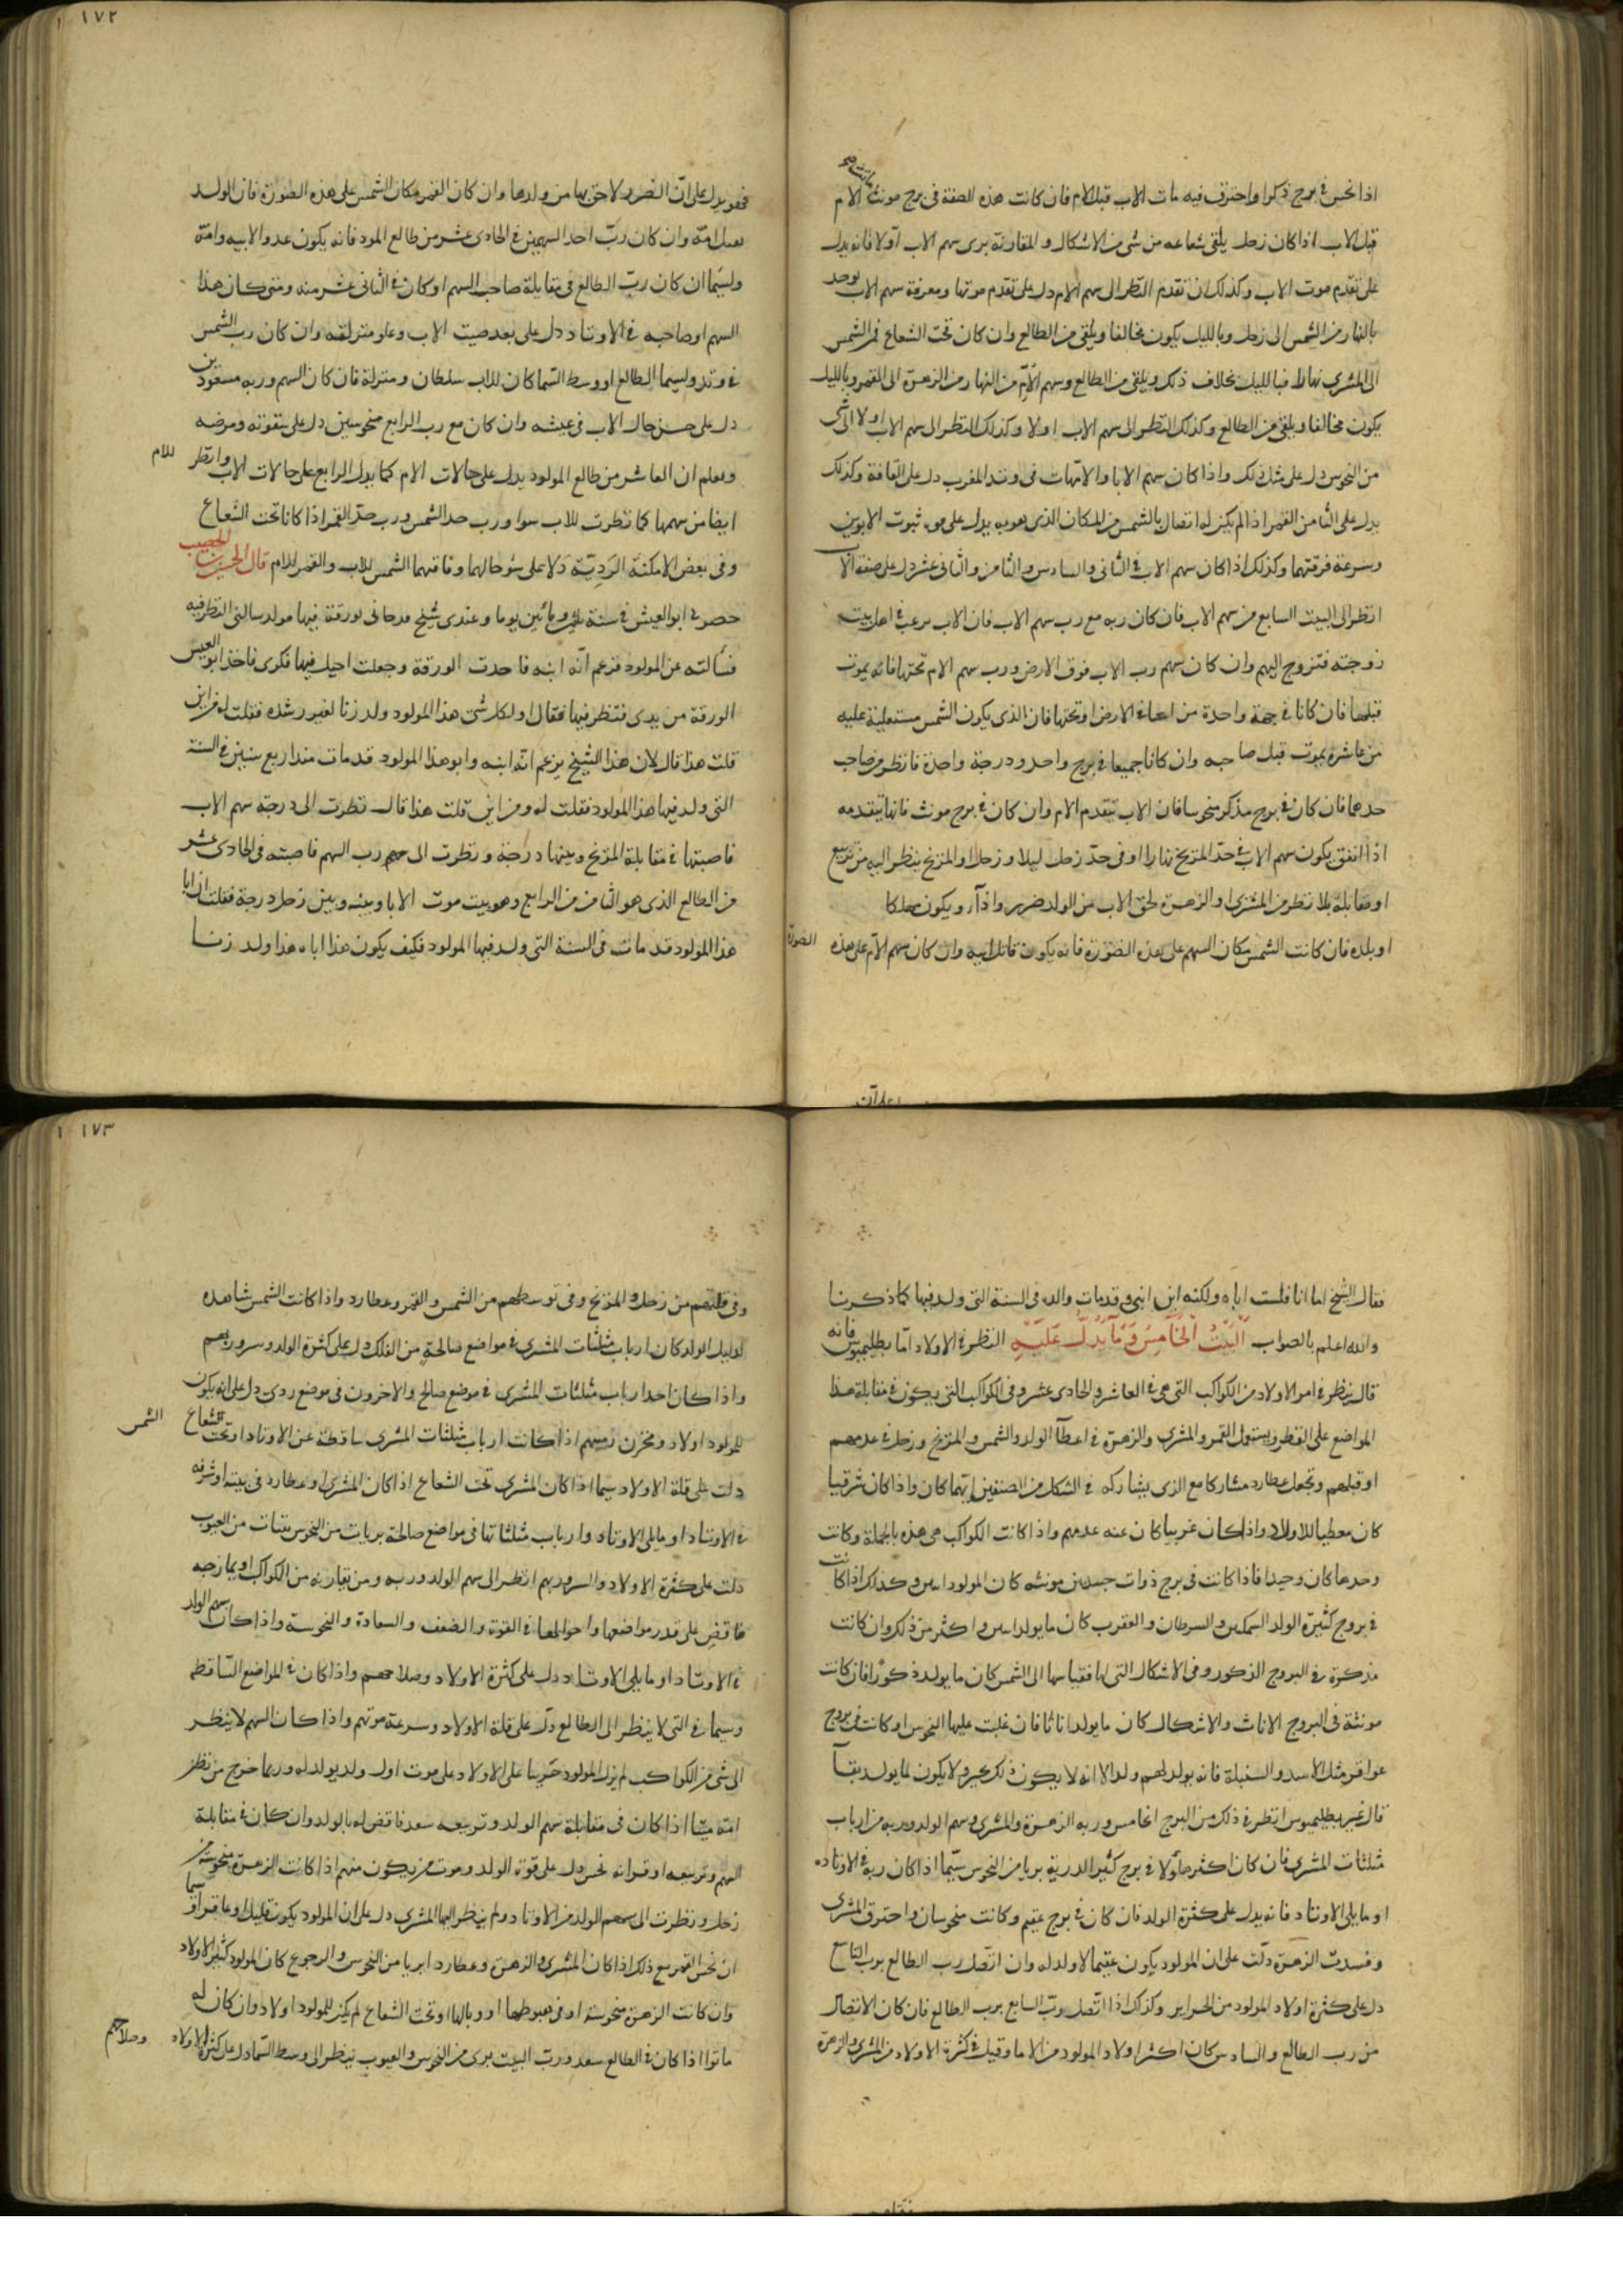 اذا نحس في برج ذكر واحترق فيه مات الاب قبل الام فان كانت هذه الصفة في برج مونث ماتت الام
قبل الاب اذا كان زحل يلقى شعاعه من شى من الاشكال والمقارنة يرى سهم الاب اولا فانه يدل
على تقدم موت الاب وكذلك ان تقدم النظر الى سهم الام دل على تقدم موتها ومعرفة سهم الاب يوخذ
بالنهار من الشمس الى زحل وبالليل يكون مخالفا ويلقى من الطالع وان كان تحت الشعاع فمن الشمس
الى المشترى نهارا فبالليل بخلاف ذلك ويلقى من الطالع وسهم الام من النهار من الزهرة الى القمر وبالليل
يكون مخالفا ويلقى من الطالع وكذلك النظر الى سهم الاب اولا وكذلك النظر الى سهم الاب اولا الى شى
من النحوس دل على مثل ذلك واذا كان سهم الابا والامهات في وتد المغرب دل على العافة وكذلك
يدل على الثامن القمر اذا لم يكن له اتصال بالشمس من المكان الذى هو به يدل على ثبوت الابوين
وسرعة فرقتهما وكذلك اذا كان سهم الاب في الثانى والسادس والثامن والثانى عشر دل على صفة الاب
انظر الى البيت السابع من سهم الاب فان كان ربه مع رب سهم الاب فان الاب يرغب في اهل بيت
زوجته فتزوج اليهم وان كان سهم رب الاب فوق الارض ورب سهم الام تحتها فانه يموت
قبلها فان كانا في جهة واحدة من الارض او تحتها فان الذى يكون الشمس مستعلية عليه
من عاشره يموت قبل صاحبه وان كانا جميعا في برج واحد ودرجة واحدة فانظر من صاحب
حدهما فان كان في برج مذكر منحوسا فان الاب يتقدم الام وان كان في برج مونث فانها تتقدمه
اذا اتفق يكون سهم الاب في حد المريخ نهارا او في حد زحل ليلا وزحل او المريخ ينظر اليه من تربيع
او مقابلة بلا نظر من المشترى او الزهرة لحق الاب من الولد ضرر واذا ويكون مهلكا
او بلده فان كانت الشمس مكان السهم على هذه الصورة فانه يكون قاتل ابيه وان كان سهم الام على هذه الصورة
فهو يدل على ان الضرر لاحق بها من ولدها وان كان القمر مكان الشمس على هذه الصورة فان الولد
يقتل امه وان كان رب احد السهمين في الحادى عشر من طالع المولود فانه يكون عدوا لابيه وامه
ولسيما ان كان رب الطالع في مقابلة صاحب السهم او كان في الثانى عشر منه ومتى كان هذا
السهم او صاحبه في الاوتاد دل على بعد صيت الاب وعلو منزلته وان كان رب الشمس
في وتد ولسيما الطالع او وسط السما كان للاب سلطان ومنزلة فان كان السهم وربه مسعودين
دل على حسن حال الاب في عيشه وان كان مع رب الرابع منحوسين دل على شقوته ومرضه
ويعلم ان العاشر من طالع المولود يدل على حالات الام كما يدل الرابع على حالات الاب وانظر للام
ايضا من سهمها كما نظرت للاب سوا ورب حد الشمس ورب حد القمر اذا كانا تحت الشعاع
وفي بعض الامكنة الردية دلا على سؤ حالهما وفاقهما الشمس للاب والقمر للام قال الحسن بن الخصيب
حضر في ابو العيش في سنة ومائتين يوما وعندى شيخ قد جانى بورقة فيها مولد سالنى النظر فيه
فسألته عن المولود فزعم انه ابنه فاخذت الورقة وجعلت اجيل فيها فكرى فاخذ ابو العيش
الورقة من يدى فنظر فيها فقال اول كل شى هذا المولود ولد زنا لغير رشده فقلت له من اين
قلت هذا قال لان هذا الشيخ يزعم انه ابنه وابو هذا المولود قد مات منذ اربع سنين في السنة
التى ولد فيها هذا المولود فقلت له ومن اين قلت هذا قال نظرت الى درجة سهم الاب
فاصبتها في مقابلة المريخ وبينها درجة ونظرت الى رب السهم فاصبته في الحادى عشر
من الطالع الذى هو الثامن من الرابع وهو بيت موت الابا وبينه وبين زحل درجة فقلت ان ابا
هذا المولود قد مات في السنة التى ولد فيها المولود فكيف يكون هذا اباه هذا ولد زنا
فقال الشيخ اما انا فلست اباه ولكنه ابن ابنى وقد مات والده في السنة التى ولد فيها كما ذكرنا
والله اعلم بالصواب البيت الخامس وما يدل عليه النظر في الاولاد اما بطليموس فانه
قال ينظر في امر الاولاد من الكواكب التى هى في العاشر والحادى عشر وفي الكواكب التى يكون في مقابلة هذا
المواضع على القطر ويستعمل القمر والمشترى والزهرة في اعطآ الولد والشمس والمريخ وزحل في عدمهم
او قبلهم وتجعل عطارد مشاركا مع الذى يشاركه في الشكل من الصنفين ايهما كان واذا كان شرقيا
كان معطيا للاولاد واذا كان غربيا كان عنه عدمهم واذا كانت الكواكب هى هذه بالجملة وكانت
وحدها كان وحيدا فاذا كانت في برج ذوات جسدين مونثه كان المولود اثنين وكذلك اذا كانت
في بروج كثيرة الولد السمكين والسرطان والعقرب كان ما يولد اثنين واكثر من ذلك وان كانت
مذكرة في البروج الذكور وفي الاشكال التى لها فقياسها الى الشمس كان ما يولد ذكورا فان كانت
مونثة في البروج الاناث والاشكال كان ما يولد اناثا فان غلبت عليها النحوس او كانت في بروج
عواقر مثل الاسد والسنبلة فانه يولد لهم ولد الا انه لا يكون ذلك خير ولا يكون لما يولد بقآ
قال غير بطليموس انظر في ذلك من البرج الخامس وربه الزهرة والمشترى وسهم الولد وربه من ارباب
مثلثات المشترى فان كان اكثر هاولا في برج كثير الدرية بريا من النحوس سيما اذا كان ربه في الاوتاد
او ما يلى الاوتاد فانه يدل على كثرة الولد فان كان في برج عقيم وكانت منحوسان واحترق المشترى
وفسدت الزهرة دلت على ان المولود يكون عقيما لا ولد له وان اتصل رب الطالع برب التاسع
دل على كثرة اولاد المولود من الحراير وكذلك اذا اتصل رب السابع برب الطالع فان كان الاتصال
من رب الطالع والسادس كان اكثر اولاد المولود من الاما وقيل في كثرة الاولاد من المشترى والزهرة
وفي قلتهم من زحل والمريخ وفي توسطهم من الشمس والقمر وعطارد واذا كانت الشمس شاهده
لدليل الولد كان ارباب مثلثات المشترى في مواضع صالحة من الفلك دل على كثرة الولد وسروربهم
واذا كان احد ارباب مثلثات المشترى في موضع صالح والاخرون في موضع ردى دل على انه يكون
للمولود اولاد ومخزن منهم اذا كانت ارباب مثلثات المشترى ساقطة عن الاوتاد او تحت الشعاع الشمس
دلت على قلة الاولاد سيما اذا كان المشترى تحت الشعاع اذا كان المشترى او عطارد في بيته او شرفه
في الاوتاد او ما يلى الاوتاد وارباب مثلثاتها في مواضع صالحة بريات من النحوس نقيات من العيوب
دلت على كثرة الاولاد والسرور بهم انظر الى سهم الولد وربه ومن يقارنه من الكواكب او يمازجه
فاقض على قدر مواضعها واحوالها في القوة والضعف والسعادة والنحوسة واذا كان سهم الولد
في الاوتاد او ما يلى الاوتاد دل على كثرة الاولاد وصلاحهم واذا كان في المواضع الساقطه
وسيما في التى لا ينظر الى الطالع دل على قلة الاولاد وسرعة موتهم واذا كان السهم لا ينظر
الى شى من الكواكب لم يزل المولود حزينا على الاولاد على موت اول ولد يولد له وربما خرج من بطن
امه ميتا اذا كان في مقابلة سهم الولد وتربيعه سعد فاقض له بالولد وان كان في مقابلة
السهم وتربيعه او قرانه نحس دل على قوة الولد وموت من يكون منهم اذا كانت الزهرة منحوسة من
زحل ونظرت الى سهم الولد من الاوتاد ولم ينظر اليها المشترى دل على ان المولود يكون قليل او عاقرا سيما
ان نحس القمر مع ذلك اذا كان المشترى والزهرة وعطارد ابريا من النحوس والرجوع كان المولود كثير الاولاد
وان كانت الزهرة منحوسة او في هبوطها او وبالها او تحت الشعاع لم يكن للمولود اولاد وان كان له
ماتوا اذا كان في الطالع سعد ورب البيت برى من النحوس والعيوب ينظر الى وسط السما دل على كثرة الاولاد وصلاحهم